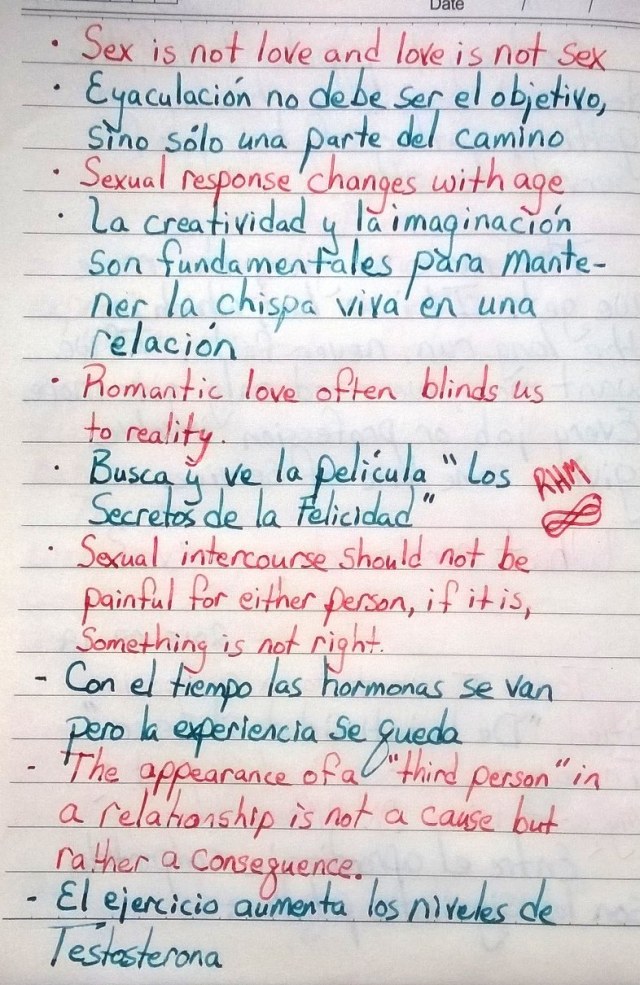 Date / /
· Sex is not love and love is not sex
· Eyaculación no debe ser el objetivo,
sino sólo una parte del camino
· Sexual response changes with age
· La creatividad y la imaginación
son fundamentales para mante-
ner la chispa viva en una
relación
· Romantic love often blinds us
to reality.
· Busca y ve la película "Los
Secretos de la Felicidad"
RHM
· Sexual intercourse should not be
painful for either person, if it is,
Something is not right.
- Con el tiempo las hormonas se van
pero la experiencia se queda
- The appearance of a "third person" in
a relationship is not a cause but
rather a consequence.
- El ejercicio aumenta los niveles de
Testosterona